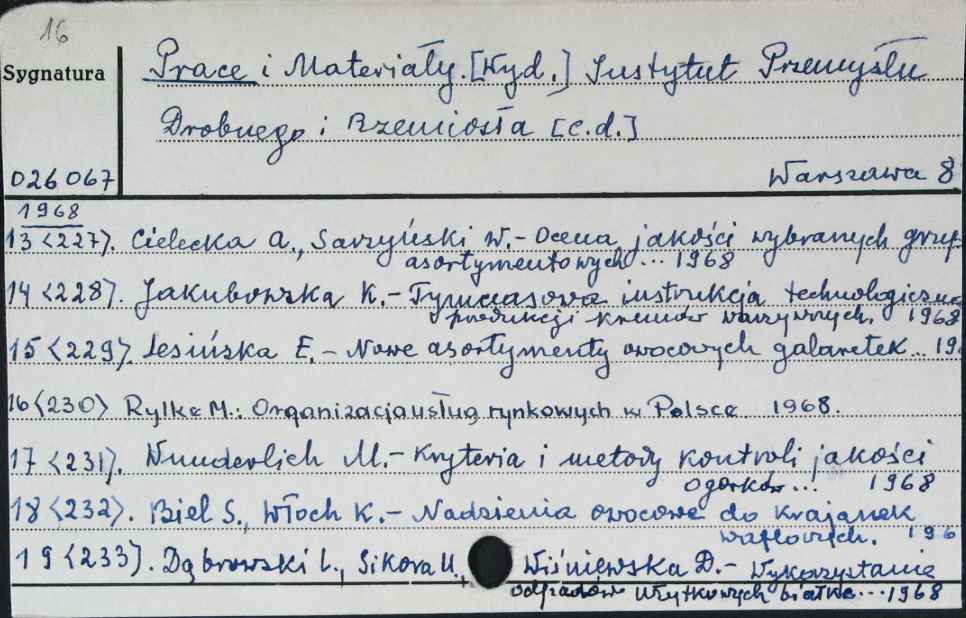 16
Sygnatura
Prace i Materiały. [Wyd.] Instytut Przemysłu
Drobnego i Rzemiosła [c.d.]
026067
Warszawa 8
1968
13 <227>. Cielecka A., Sarzyński W. - Ocena jakości wybranych grup
asortymentowych ... 1968
14 <228>. Jakubowska K. - Tymczasowa instrukcja technologiczna
produkcji kremów warzywnych. 1968
15 <229>. Lesińska E. - Nowe asortymenty owocowych galaretek .. 19
16 <230> Rylke M.: Organizacja usług rynkowych w Polsce 1968.
17 <231>. Wunderlich M. - Kryteria i metody kontroli jakości
ogórków ... 1968
18 <232>. Biel S., Włoch K. - Nadzienia owocowe do krajanek
waflowych. 196
19 <233>. Dąbrowski L., Sikora U., Wiśniewska D. - Wykorzystanie
odpadów użytkowych białka ... 1968